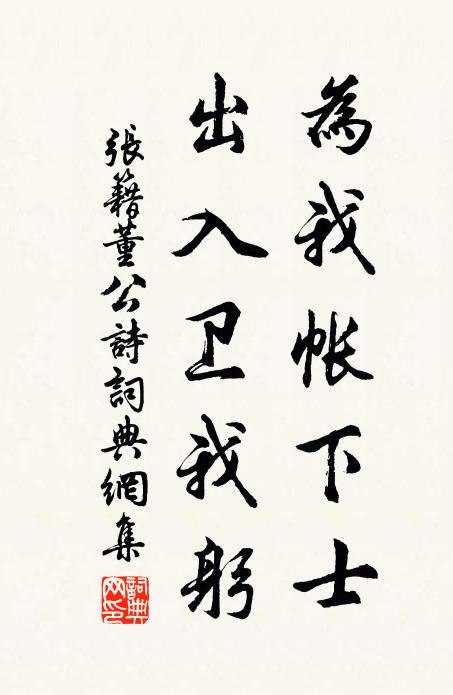 為我帐下士
出入卫我躬
張籍董公詩詞典網集
詞典網印